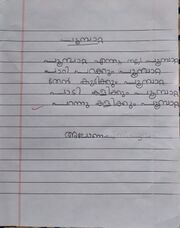 പൂമ്പാറ്റ
പൂമ്പാറ്റ എന്തു നല്ല പൂമ്പാറ്റ
പാറി പറക്കും പൂമ്പാറ്റ
തേൻ കുടിക്കും പൂമ്പാറ്റ
പാടി കളിക്കും പൂമ്പാറ്റ
പറന്നു കളിക്കും പൂമ്പാറ്റ